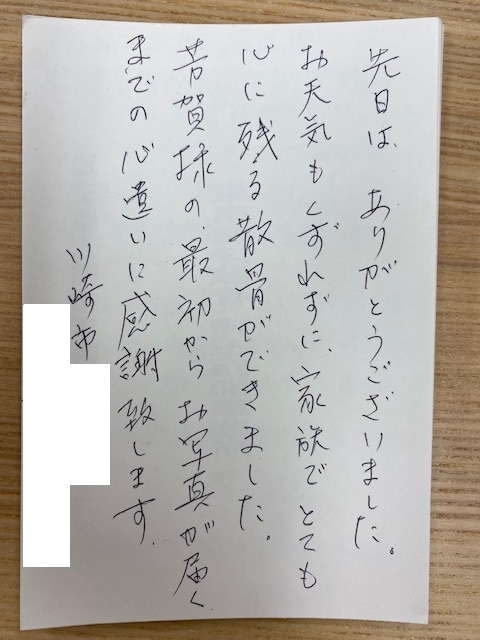 先日は、ありがとうございました。
お天気もくずれずに、家族でとても
心に残る散骨ができました。
芳賀様の、最初からお写真が届く
までの心遣いに感謝致します。
川崎市